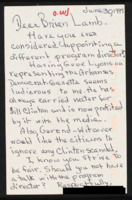 June 30, 1997
Dear Brien Lamb.
Have you ever
considered appointing a
different program director?
Having Gene Lyons
representing the Arkansas
Democrat-Gazette seems
ludicrous to me. He has
always carried water for
Bill Clinton and is now protected
by it with the media.
Also, Gerend-Witcover
would like the citizens to
ignore any Clinton scandal.
I know you strive to
be fair. Should you not have
a talk with the program
director? Respectfully,